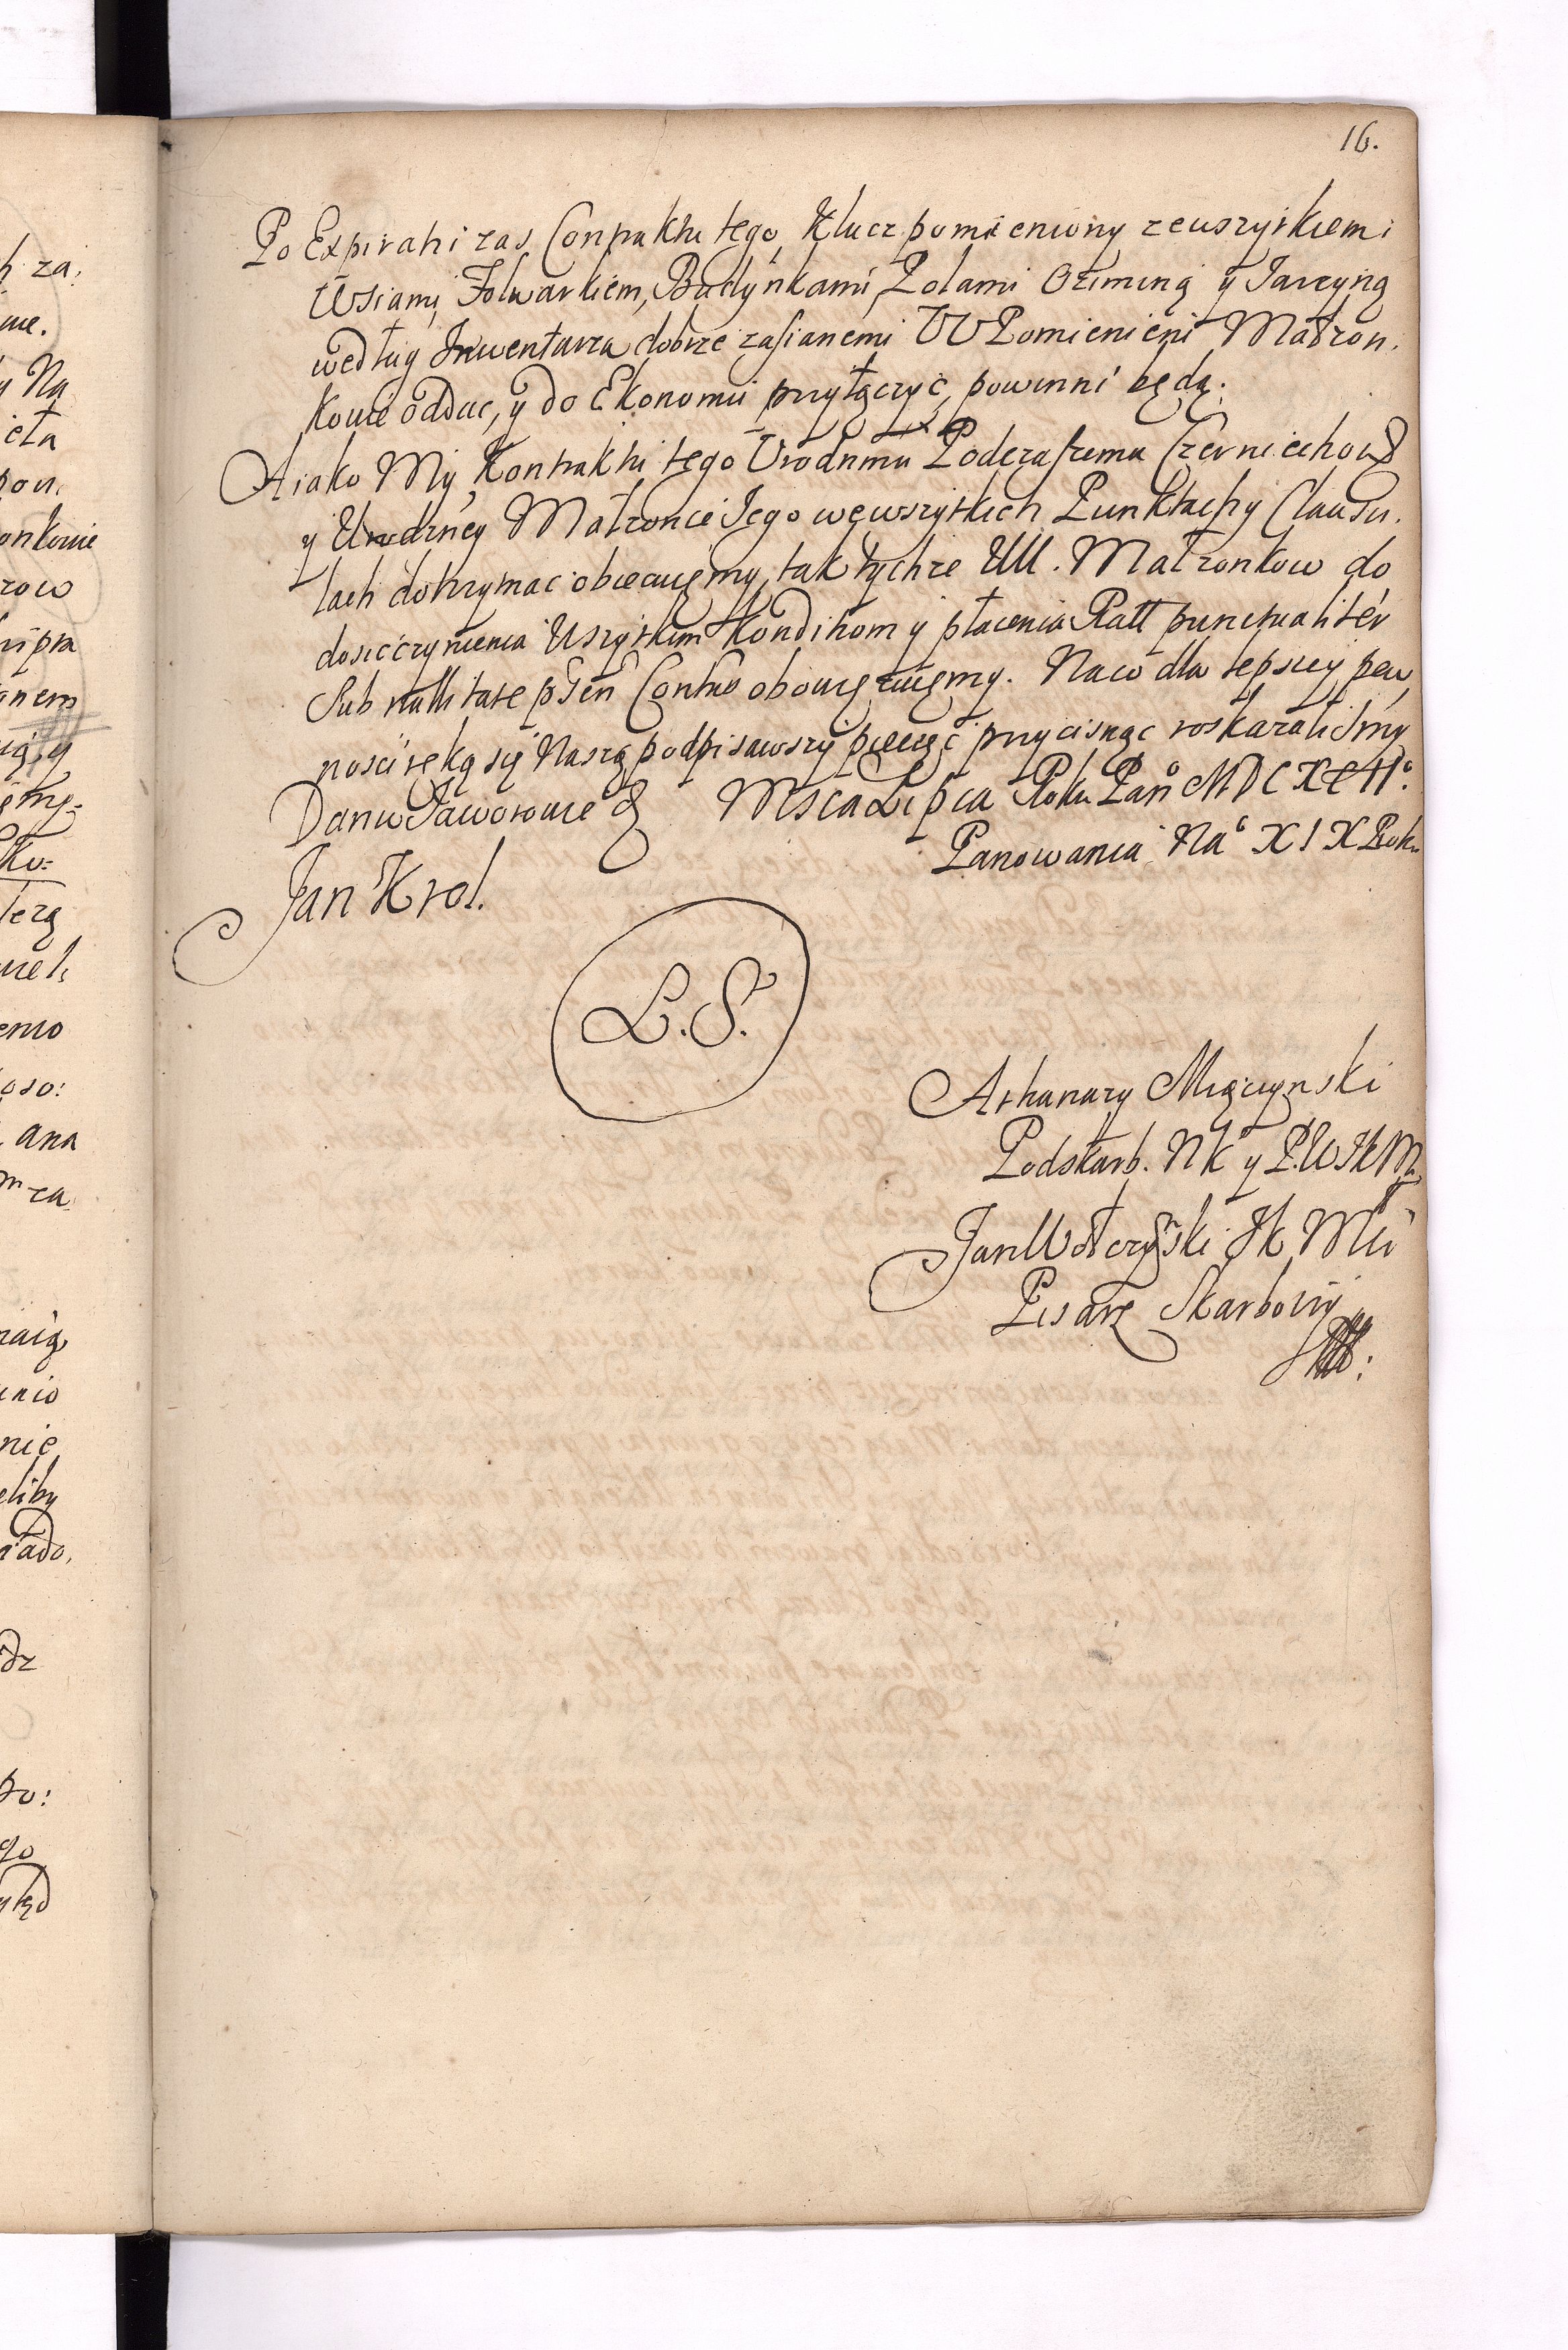 16.
Po Expiratii zas Contraktu tego, Klucz pomieniony zewszytkiemi
Wsiami, Folwarkiem, Budynkami, Polami Oziminą y Jarzyną
według Inwentarza dobrze zasianemi UU Pomienieni Małzon.
kowie oddac, y do Ekonomii przyłączyć, powinni będą.
A iako My Kontraktu tego Urodnmu Podczaszemu Czerniechow
y Urodzney Małzonce Jego wewszytkich Punktach y Clausu.
lach dotrzymac obiecuięmy, tak tychze UU. Małzonkow do
dosic czynienia Wszytkim Konditiom y płacenia Ratt punctualiter
Sub nullitate pnten Contrus obowięzuięmy. Naco dla lepszey pew
nosci ręką się Naszą podpisawszy pieczęć przycisnąc roskazalismy
Dan w Jaworowie d Msca Lipca Roku Pano MDCXCIIo.
Panowania Nao XIX Roku
Jan Krol.
L.S.
Athanazy Miączynski
Podskarb. NK y P.W.JKM
Jan Wołczyński JK Mci
Pisarz Skarbowy